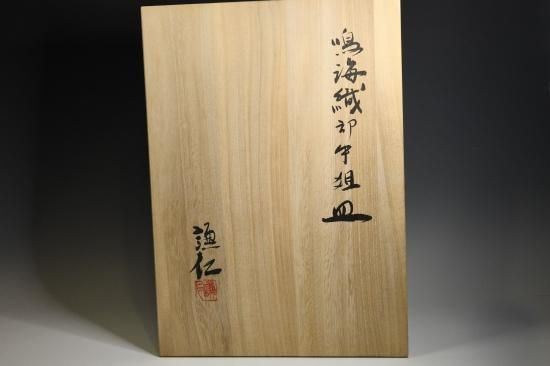 鳴海織部俎皿
謙仁